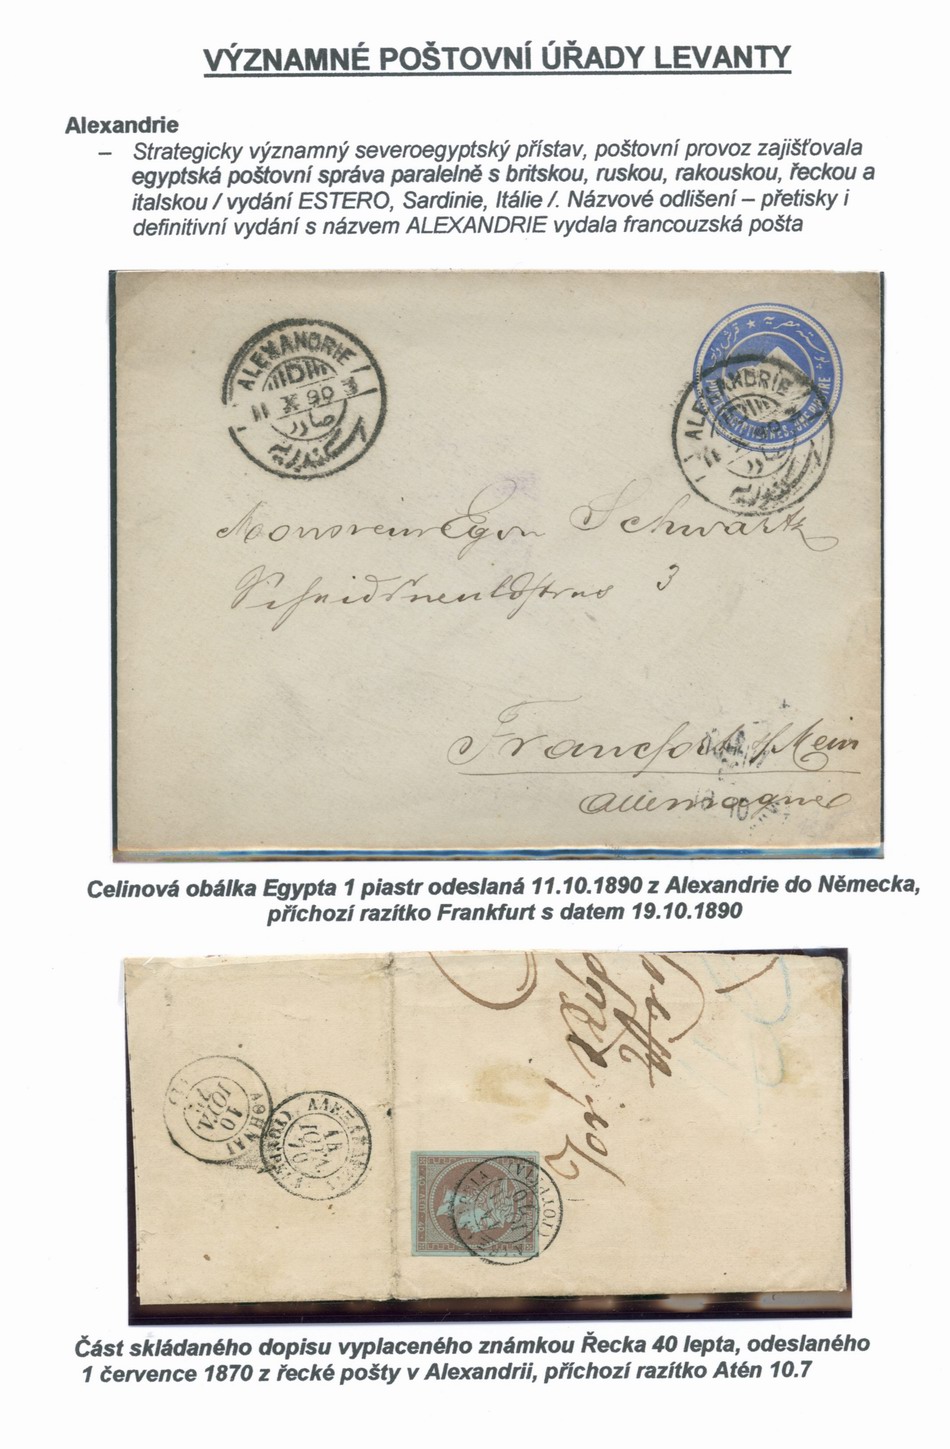 VÝZNAMNÉ POŠTOVNÍ ÚŘADY LEVANTY
Alexandrie
– Strategicky významný severoegyptský přístav, poštovní provoz zajišťovala
egyptská poštovní správa paralelně s britskou, ruskou, rakouskou, řeckou a
italskou / vydání ESTERO, Sardinie, Itálie /. Názvové odlišení – přetisky i
definitivní vydání s názvem ALEXANDRIE vydala francouzská pošta
ALEXANDRIE
D
11 X 90
صادر
اسكندرية
بوستة مصرية
ALEXANDRIE
Monsieur Egon Schwartz
3
Francfort s/Mein
Allemagne
Celinová obálka Egypta 1 piastr odeslaná 11.10.1890 z Alexandrie do Německa,
příchozí razítko Frankfurt s datem 19.10.1890
ΑΘΗΝΑΙ
10
ΙΟΥΛ
Část skládaného dopisu vyplaceného známkou Řecka 40 lepta, odeslaného
1 července 1870 z řecké pošty v Alexandrii, příchozí razítko Atén 10.7